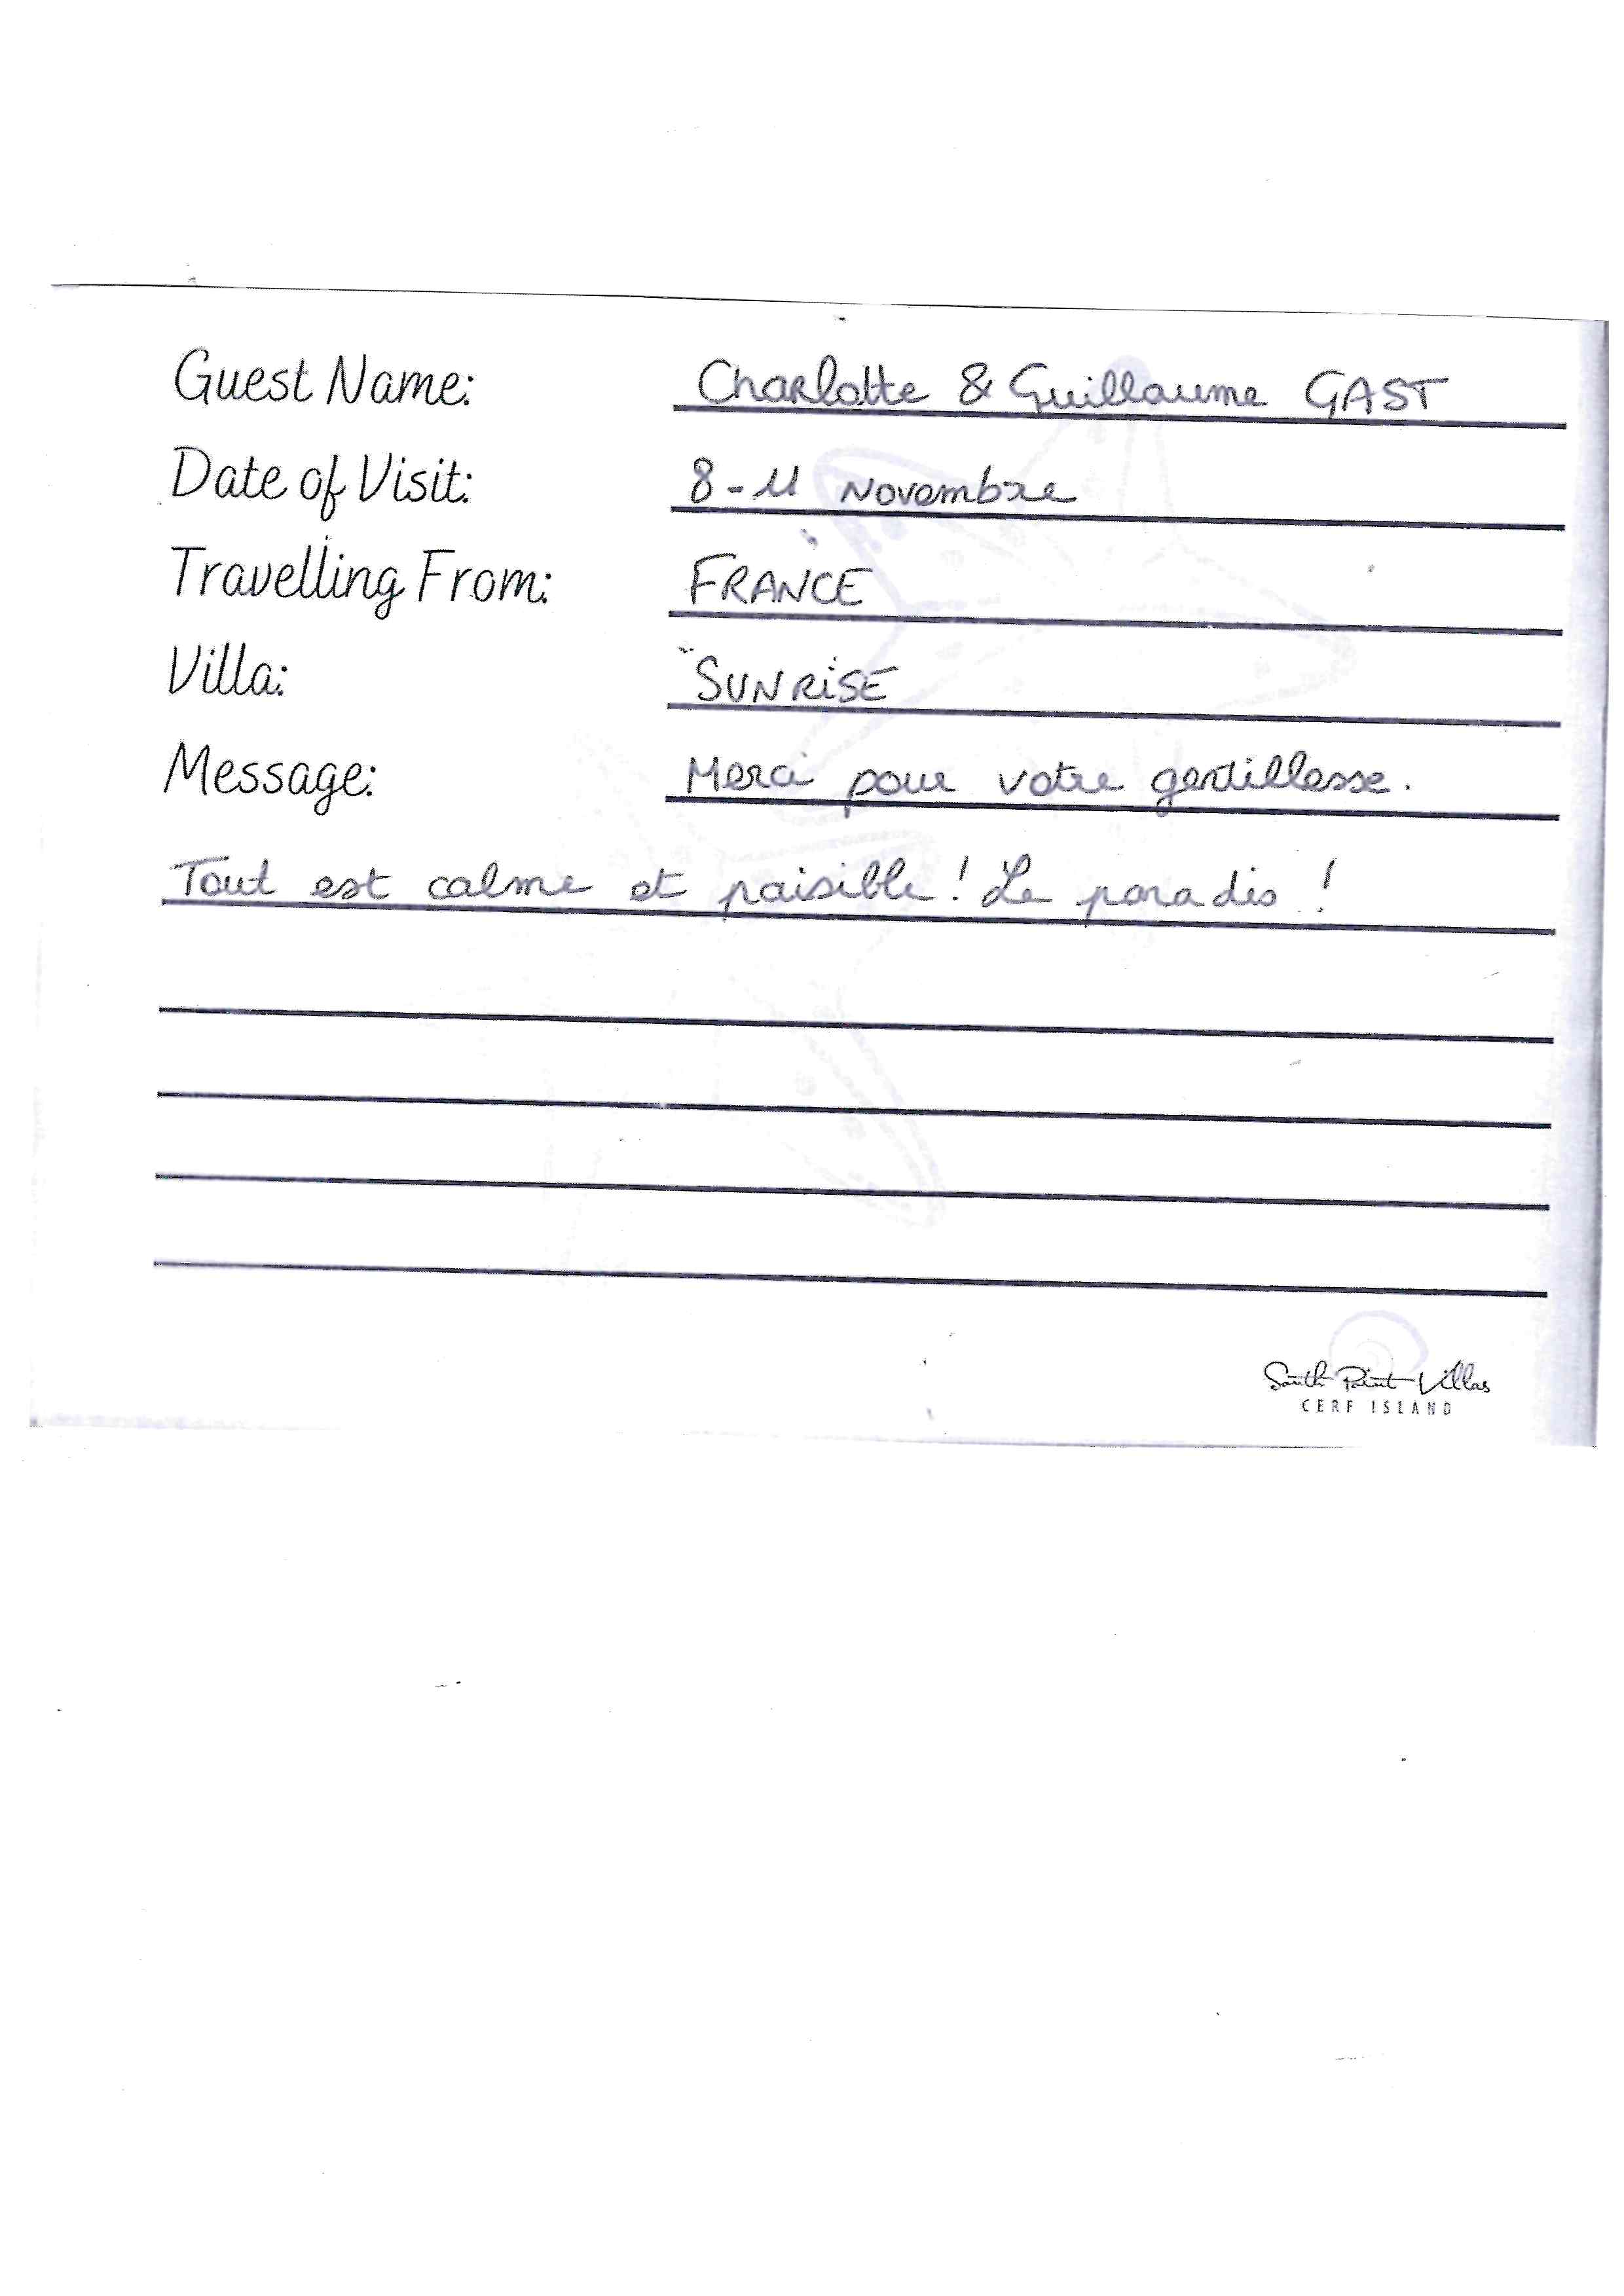 Guest Name: Charlotte & Guillaume GAST
Date of Visit: 8-11 Novembre
Travelling From: FRANCE
Villa: SUNRiSE
Message: Merci pour votre gentillesse.
Tout est calme et paisible ! Le paradis !
South Point Villas
CERF ISLAND